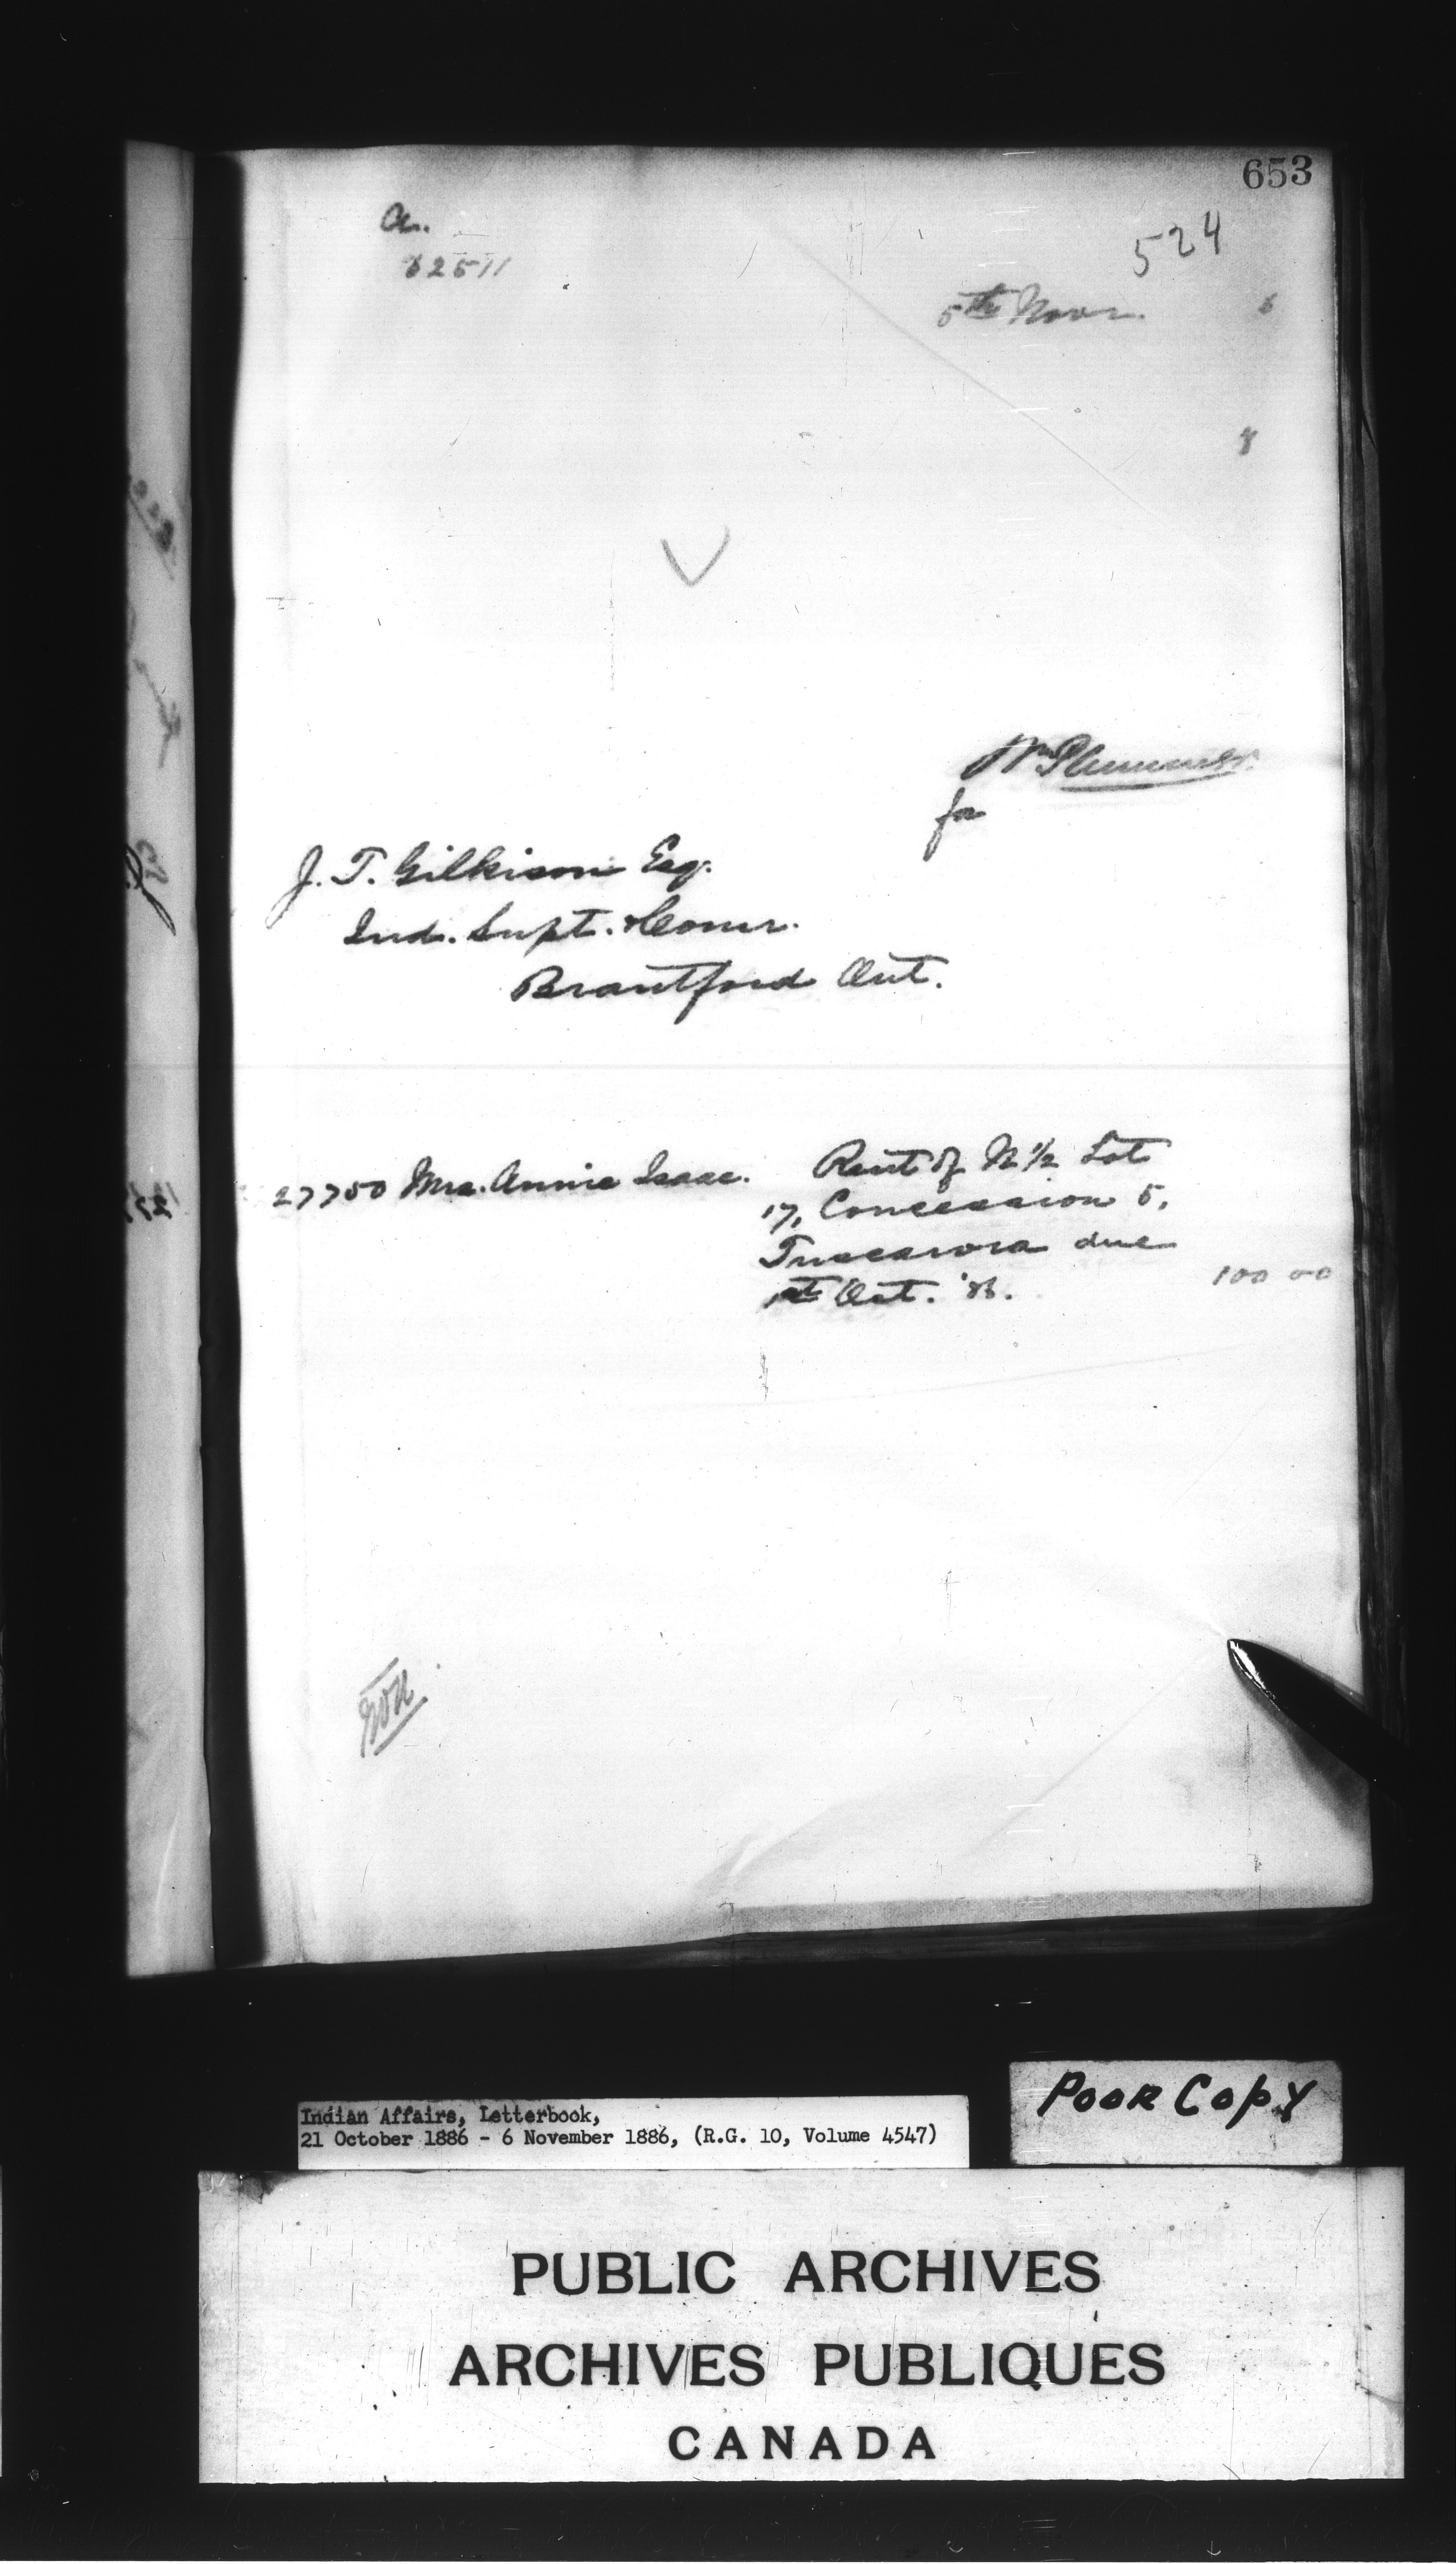 653
524
a.
62511
5th Novr. 6
8
Wm Plummer
for
J. T. Gilkison Esq.
Ind. Supt. & Comr.
Brantford Ont.
27750 Mrs. Annie Isaac. Rent of N 1/2 Lot
17, Concession 5,
Tuscarora due
1st Oct. '86. 100 00
Poor Copy
Indian Affairs, Letterbook,
21 October 1886 - 6 November 1886, (R.G. 10, Volume 4547)
PUBLIC ARCHIVES
ARCHIVES PUBLIQUES
CANADA